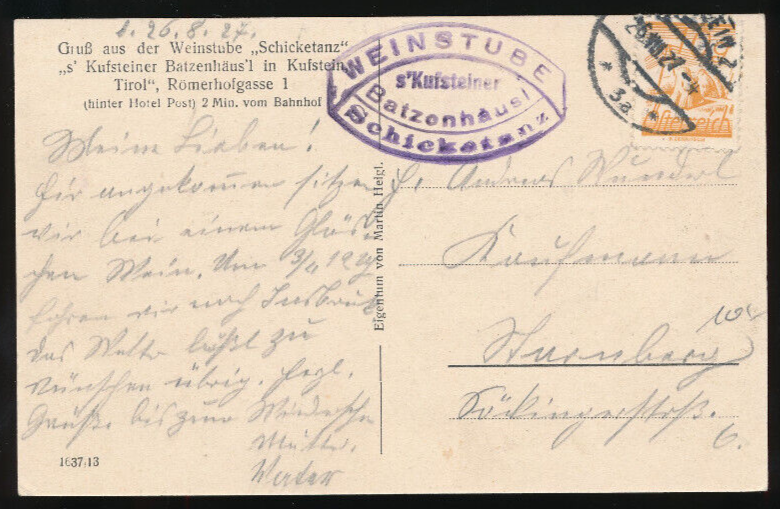 d. 26.8.27.
Gruß aus der Weinstube „Schicketanz“
„s' Kufsteiner Batzenhäus'l in Kufstein,
Tirol“, Römerhofgasse 1
(hinter Hotel Post) 2 Min. vom Bahnhof
WEINSTUBE
s'Kufsteiner
Batzenhäusl
Schicketanz
26.VIII.27
* 3a *
Österreich
Meine Lieben!
Hier angekommen sitzen
wir bei einem Gläs-
chen Wein. Um 3/4 12 Uhr
fahren wir nach Innsbruck
das Wetter läßt zu
wünschen übrig. Herzl.
Grüße bis zum Wiedersehn
Mutter.
1637/13
Eigentum von Martin Heigl.
H. Andreas Wunderl
Kaufmann
Starnberg
Söckingerstraße.
6.